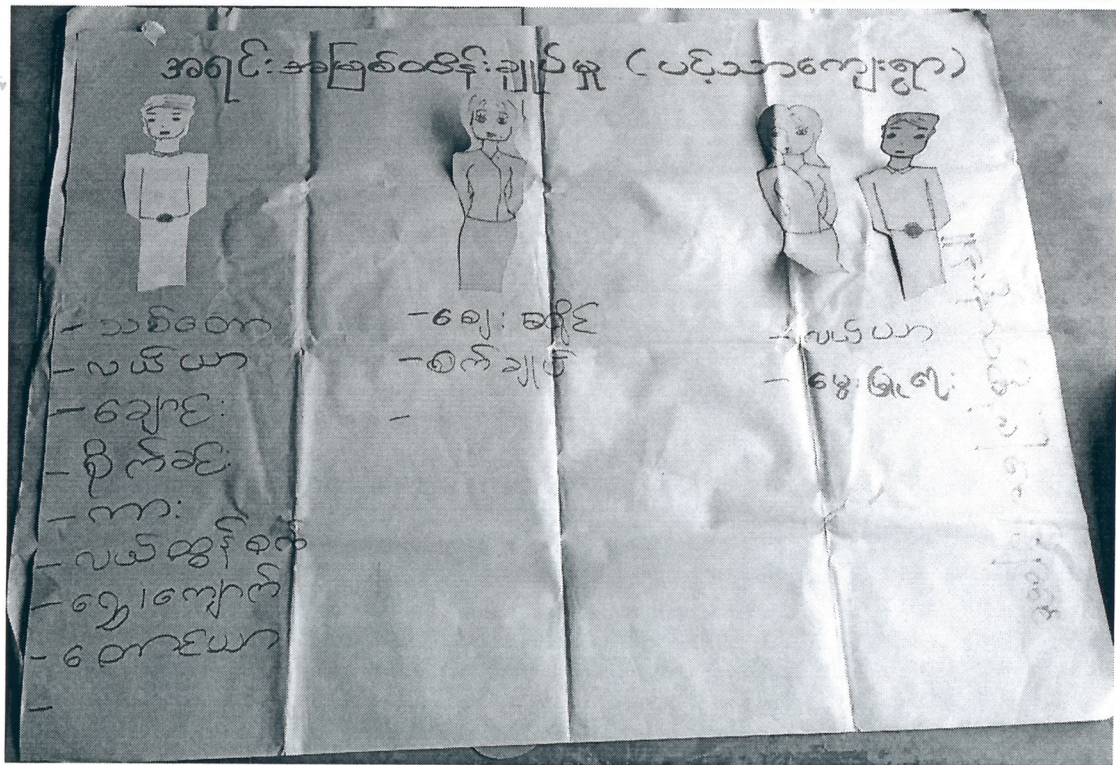 အရင်းအမြစ်ထိန်းချုပ်မှု (ပင့်သာကျေးရွာ)
- သစ်တော
- လယ်ယာ
- ချောင်း
- စိုက်ခင်း
- ကား
- လယ်ထွန်စက်
- ရွှေ၊ကျောက်
- တောင်ယာ
-
- ဈေးခရိုင်
- စက်ချုပ်
-
- လယ်ယာ
- မွေးမြူရေး